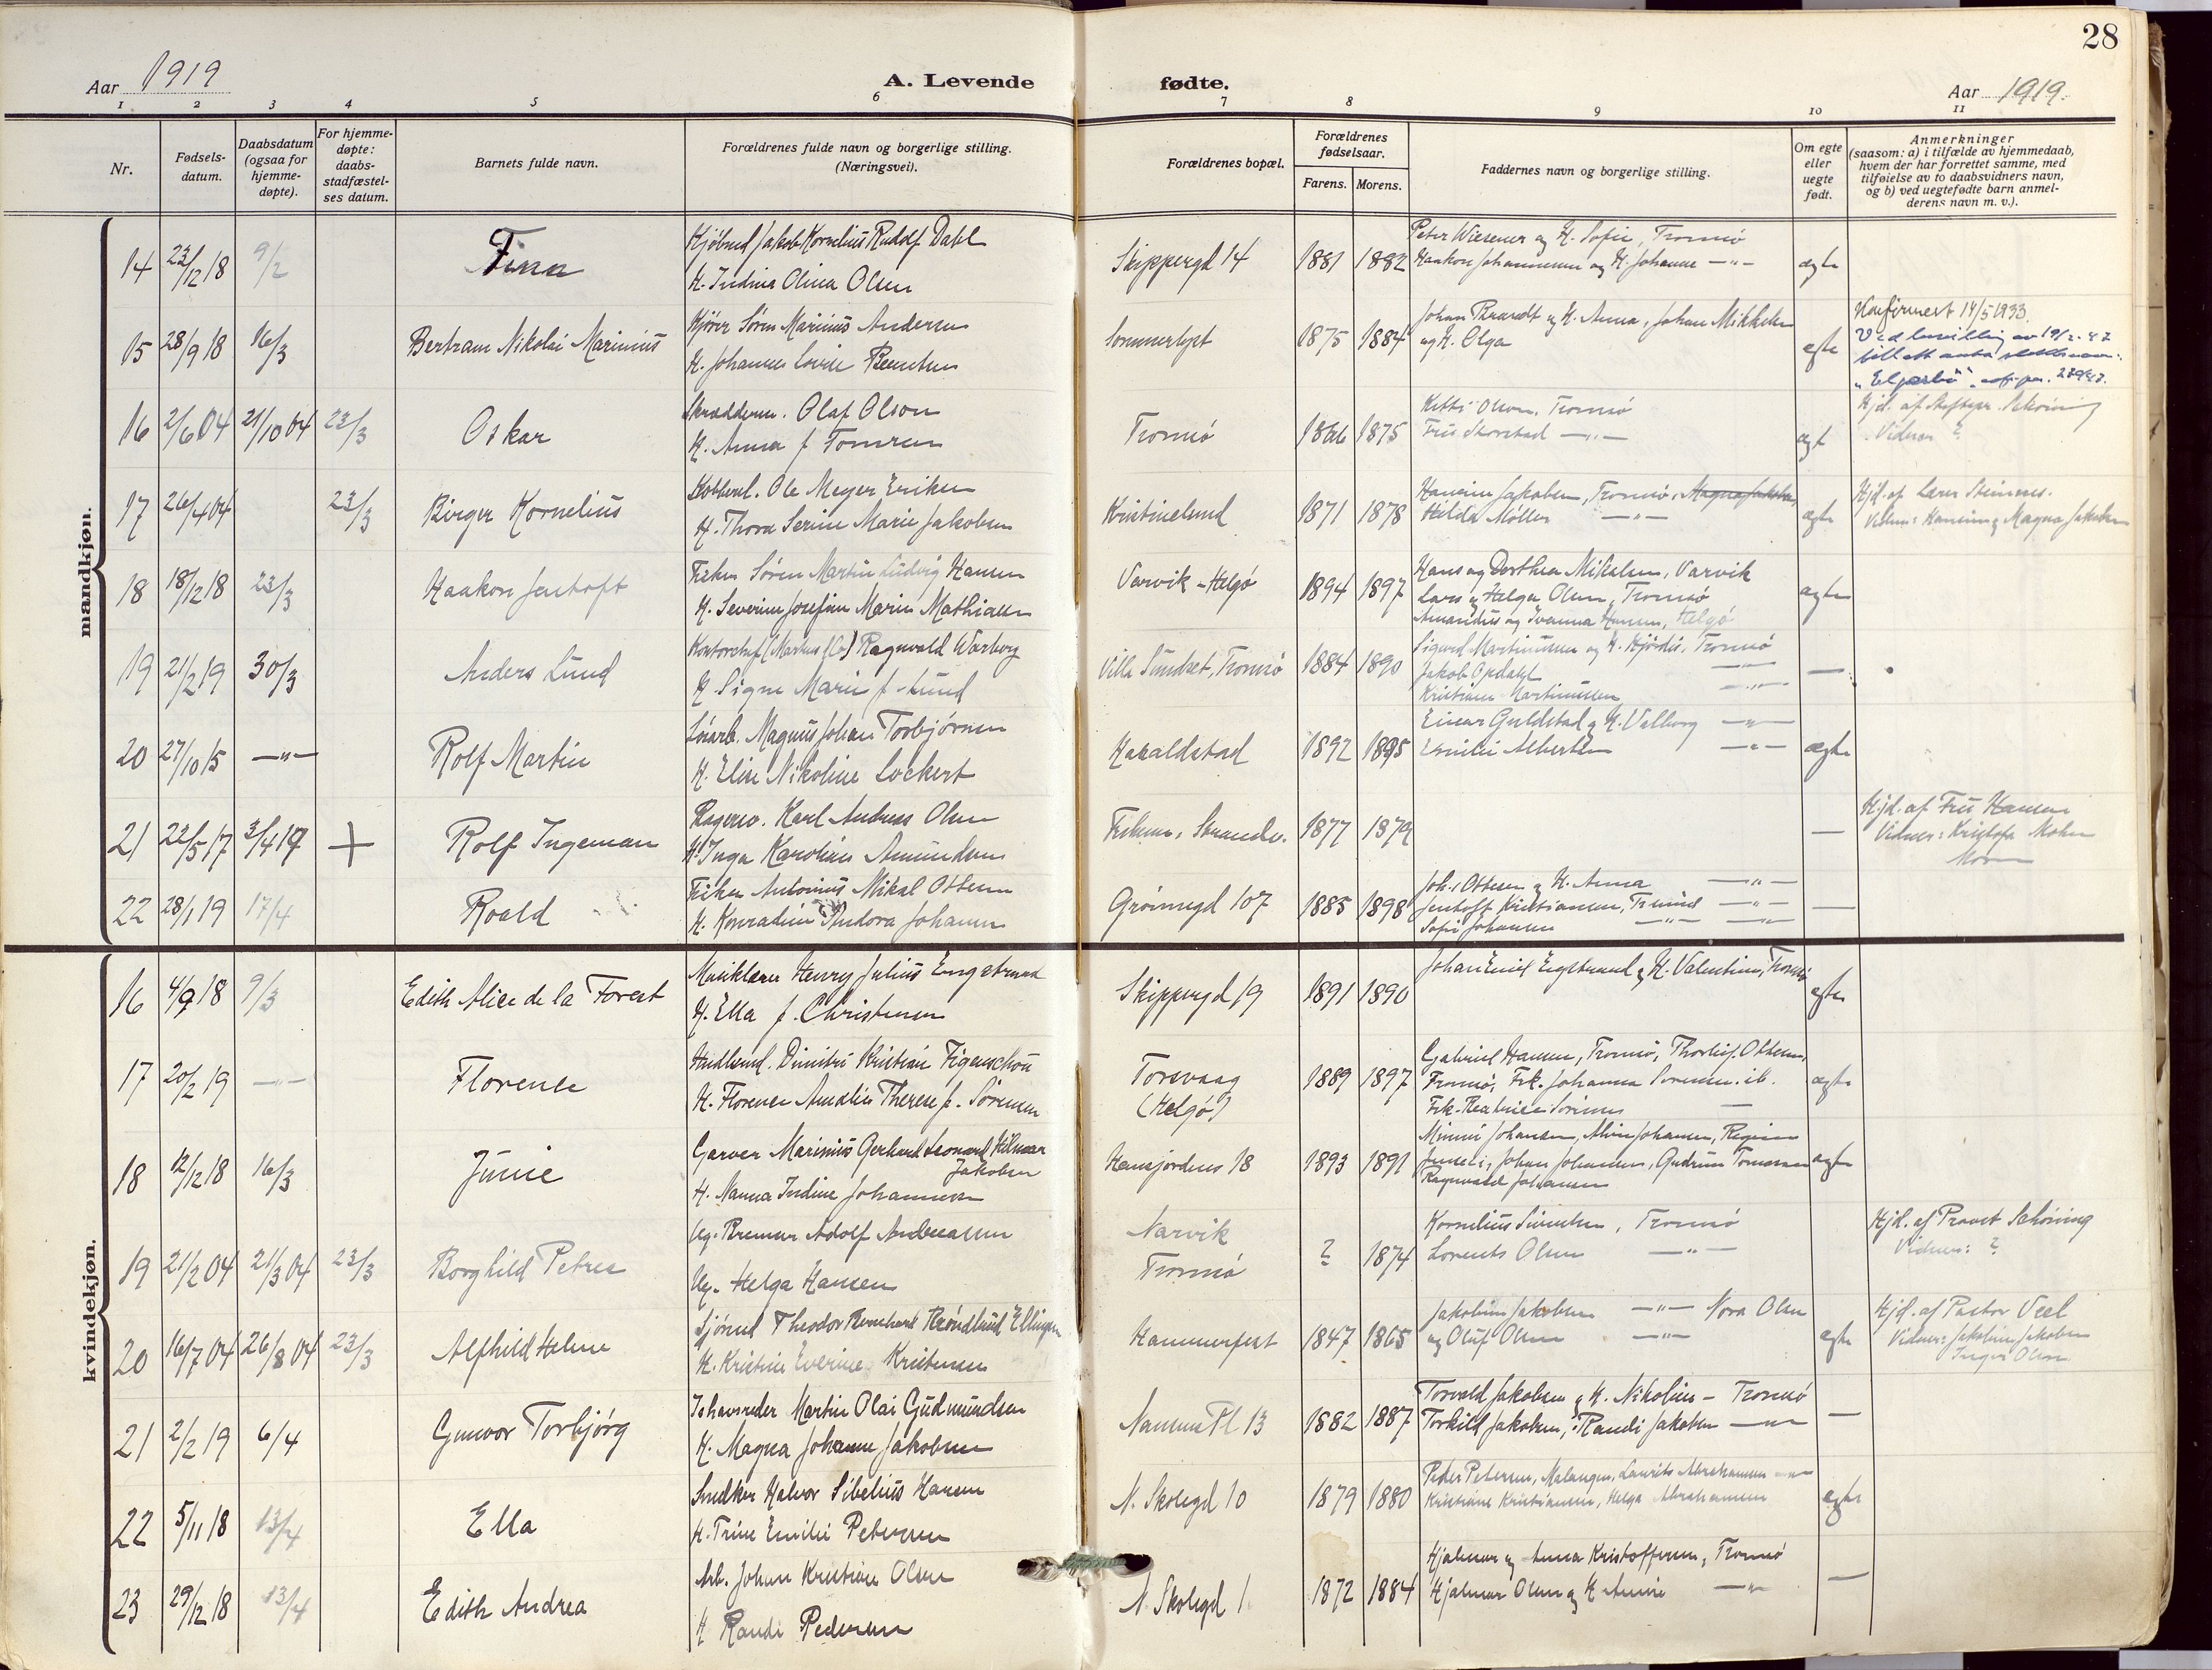 28
Aar 1919
A. Levende fødte.
Aar 1919.
1 2 3 4 5 6 7 8 9 10 11
Nr.
Fødsels-
datum.
Daabsdatum
(ogsaa for
hjemme-
døpte).
For hjemme-
døpte:
daabs-
stadfæstel-
ses datum.
Barnets fulde navn.
Forældrenes fulde navn og borgerlige stilling.
(Næringsvei).
Forældrenes bopæl.
Forældrenes
fødselsaar.
Farens. Morens.
Faddernes navn og borgerlige stilling.
Om egte
eller
uegte
født.
Anmerkninger
(saasom: a) i tilfælde av hjemmedaab,
hvem der har forrettet samme, med
tilføielse av to daabsvidners navn,
og b) ved uegtefødte barn anmel-
derens navn m. v.).
mandkjøn.
14 23/12 18 9/2 Kjøbmd Jakob Kornelius Rudolf Dahl
H. Indina Olina Olsen
Skippergd 14 1881 1882
Peter Wiesener og H. Sofie, Tromsø
Haakon Johannessen og H. Johanne —"—
ægte
15 28/9 18 16/3 Bertram Nikolai Marinius
Kjører Søren Marinius Andersen
H. Johanna Lovise Berntsen
Sommerlyst 1875 1884
Johan Thrandt og H. Anna, Johan Mikkelsen
og H. Olga
egte
Konfirmert 14/5 1933.
16 2/6 04 21/10 04 23/3 Oskar
Skrædderm. Olaf Olson
H. Anna f Tomren
Tromsø 1866 1875
Olson, Tromsø
—"—
ægt
Hjd. af Schøning
Vidner ?
17 26/4 04 23/3 Birger Kornelius
Ole Meyer Eriksen
H. Thora Serine Marie Jakobsen
Kristinelund 1871 1878
Hansine Jakobsen, Tromsø, Magna Jakobsen,
Hilda Møller —"—
ægte
Hjd. af Lærer Steinnes.
Vidner: Hansine og Magna Jakobsen
18 18/12 18 23/3 Haakon Jentoft
Fisker Søren Martin Ludvig Hansen
H. Severine Josefine Marie Mathiasen
Varvik - Helgø 1894 1897
Hans og Dorthea Mikalsen, Varvik
Lars og Helga Olsen, Tromsø
Amandus og Ivanna Hansen, Helgø
ægte
19 21/2 19 30/3 Anders Lund
Kontorchef Ragnvald Warborg
H. Signe Marie f. Lund
Villa Sundset, Tromsø 1884 1890
Sigurd Martinussen og H. Hjørdis, Tromsø
Jakob Opdahl —"—
Kristiane Martinussen —"—
—
20 27/10 15 —"— Rolf Martin
Løsarb. Magnus Johan Torbjørnsen
H. Elise Nikoline Lockert
Haraldstad 1892 1895
Einar Guldstad og H. Valborg —"—
Emilie Albertsen —"—
ægte
21 22/5 17 3/4 19 + Rolf Ingeman
Karl Andreas Olsen
H. Inga Karoline Amundsen
1877 1879
—
Hjd. af Fru Hansen
Vidner: Kristofa
22 28/1 19 17/4 Roald
Fisker Antonius Mikal Ottesen
H. Konradine Andora Johansen
Grønnegd 107 1885 1898
Joh. Ottesen og H. Anna —"—
Jentoft Kristiansen, —"—
Sofie Johansen —"— —"—
—
kvindekjøn.
16 4/9 18 9/3 Edith Alice de la Forest
Musiklærer Henry Julius Engstrand
H. Ella f. Christensen
Skippergd 19 1891 1890
Johan Emil Engstrand og H. Valentine, Tromsø
egte
17 20/2 19 —"— Florence
Handlsmd. Dimitri Kristian Figenschou
H. Florence Amalie Therese f. Sørensen
Torsvaag
(Helgø)
1889 1897
Gabriel Hansen, Tromsø, Thorleif Ottesen,
Tromsø, Frk. Johanna Sørensen. ib.
Frk. Beatrice Sørensen —
ægte
18 12/12 18 16/3 Junie
Garver Marinius Gerhard Leonard Hilmar
Jakobsen
H. Nanna Indine Johannesen
Hansjordnes 18 1893 1891
Minnie Johansen, Alvin Johansen,
Johan Johannesen, Gudrun
Ragnvald Johansen
ægte
19 21/2 04 21/3 04 23/3 Borghild Petrea
Ug. Adolf Andreassen
Ug. Helga Hansen
Narvik
Tromsø
? 1874
Kornelius Sivertsen, Tromsø
Lorents Olsen —"—
Hjd. af Provst Schøning
Vidner: ?
20 16/7 04 26/8 04 23/3 Alfhild Helene
Sjømd Theodor Ellingsen
H. Kristine Everine Kristensen
Hammerfest 1847 1865
Jakobine Jakobsen —"— Nora Olsen
og Oluf Olsen —"—
egte
Hjd. af Pastor Veel
Vidner: Jakobine Jakobsen
Olsen
21 2/2 19 6/4 Gunvor Torbjørg
Ishavsreder Martin Olai Gudmundsen
H. Magna Johanne Jakobsen
Nansens Pl 13 1882 1887
Torvald Jakobsen og H. Nikoline - Tromsø
Torkild Jakobsen, Randi Jakobsen —"—
—
22 5/11 18 13/4 Ella
Snedker Halvor Sibelius Hansen
H. Trine Emilie Petersen
N. Skolegd 10 1879 1880
Peder Petersen, Malangen, Laurits Abrahamsen —"—
Kristiane Kristiansen, Helga Abrahamsen
ægte
23 29/12 18 13/4 Edith Andrea
Arb. Johan Kristian Olsen
H Randi Pedersen
N. Skolegd 1. 1872 1884
Hjalmar og Anna Kristoffersen, Tromsø
Hjalmar Olsen og H —"—
—